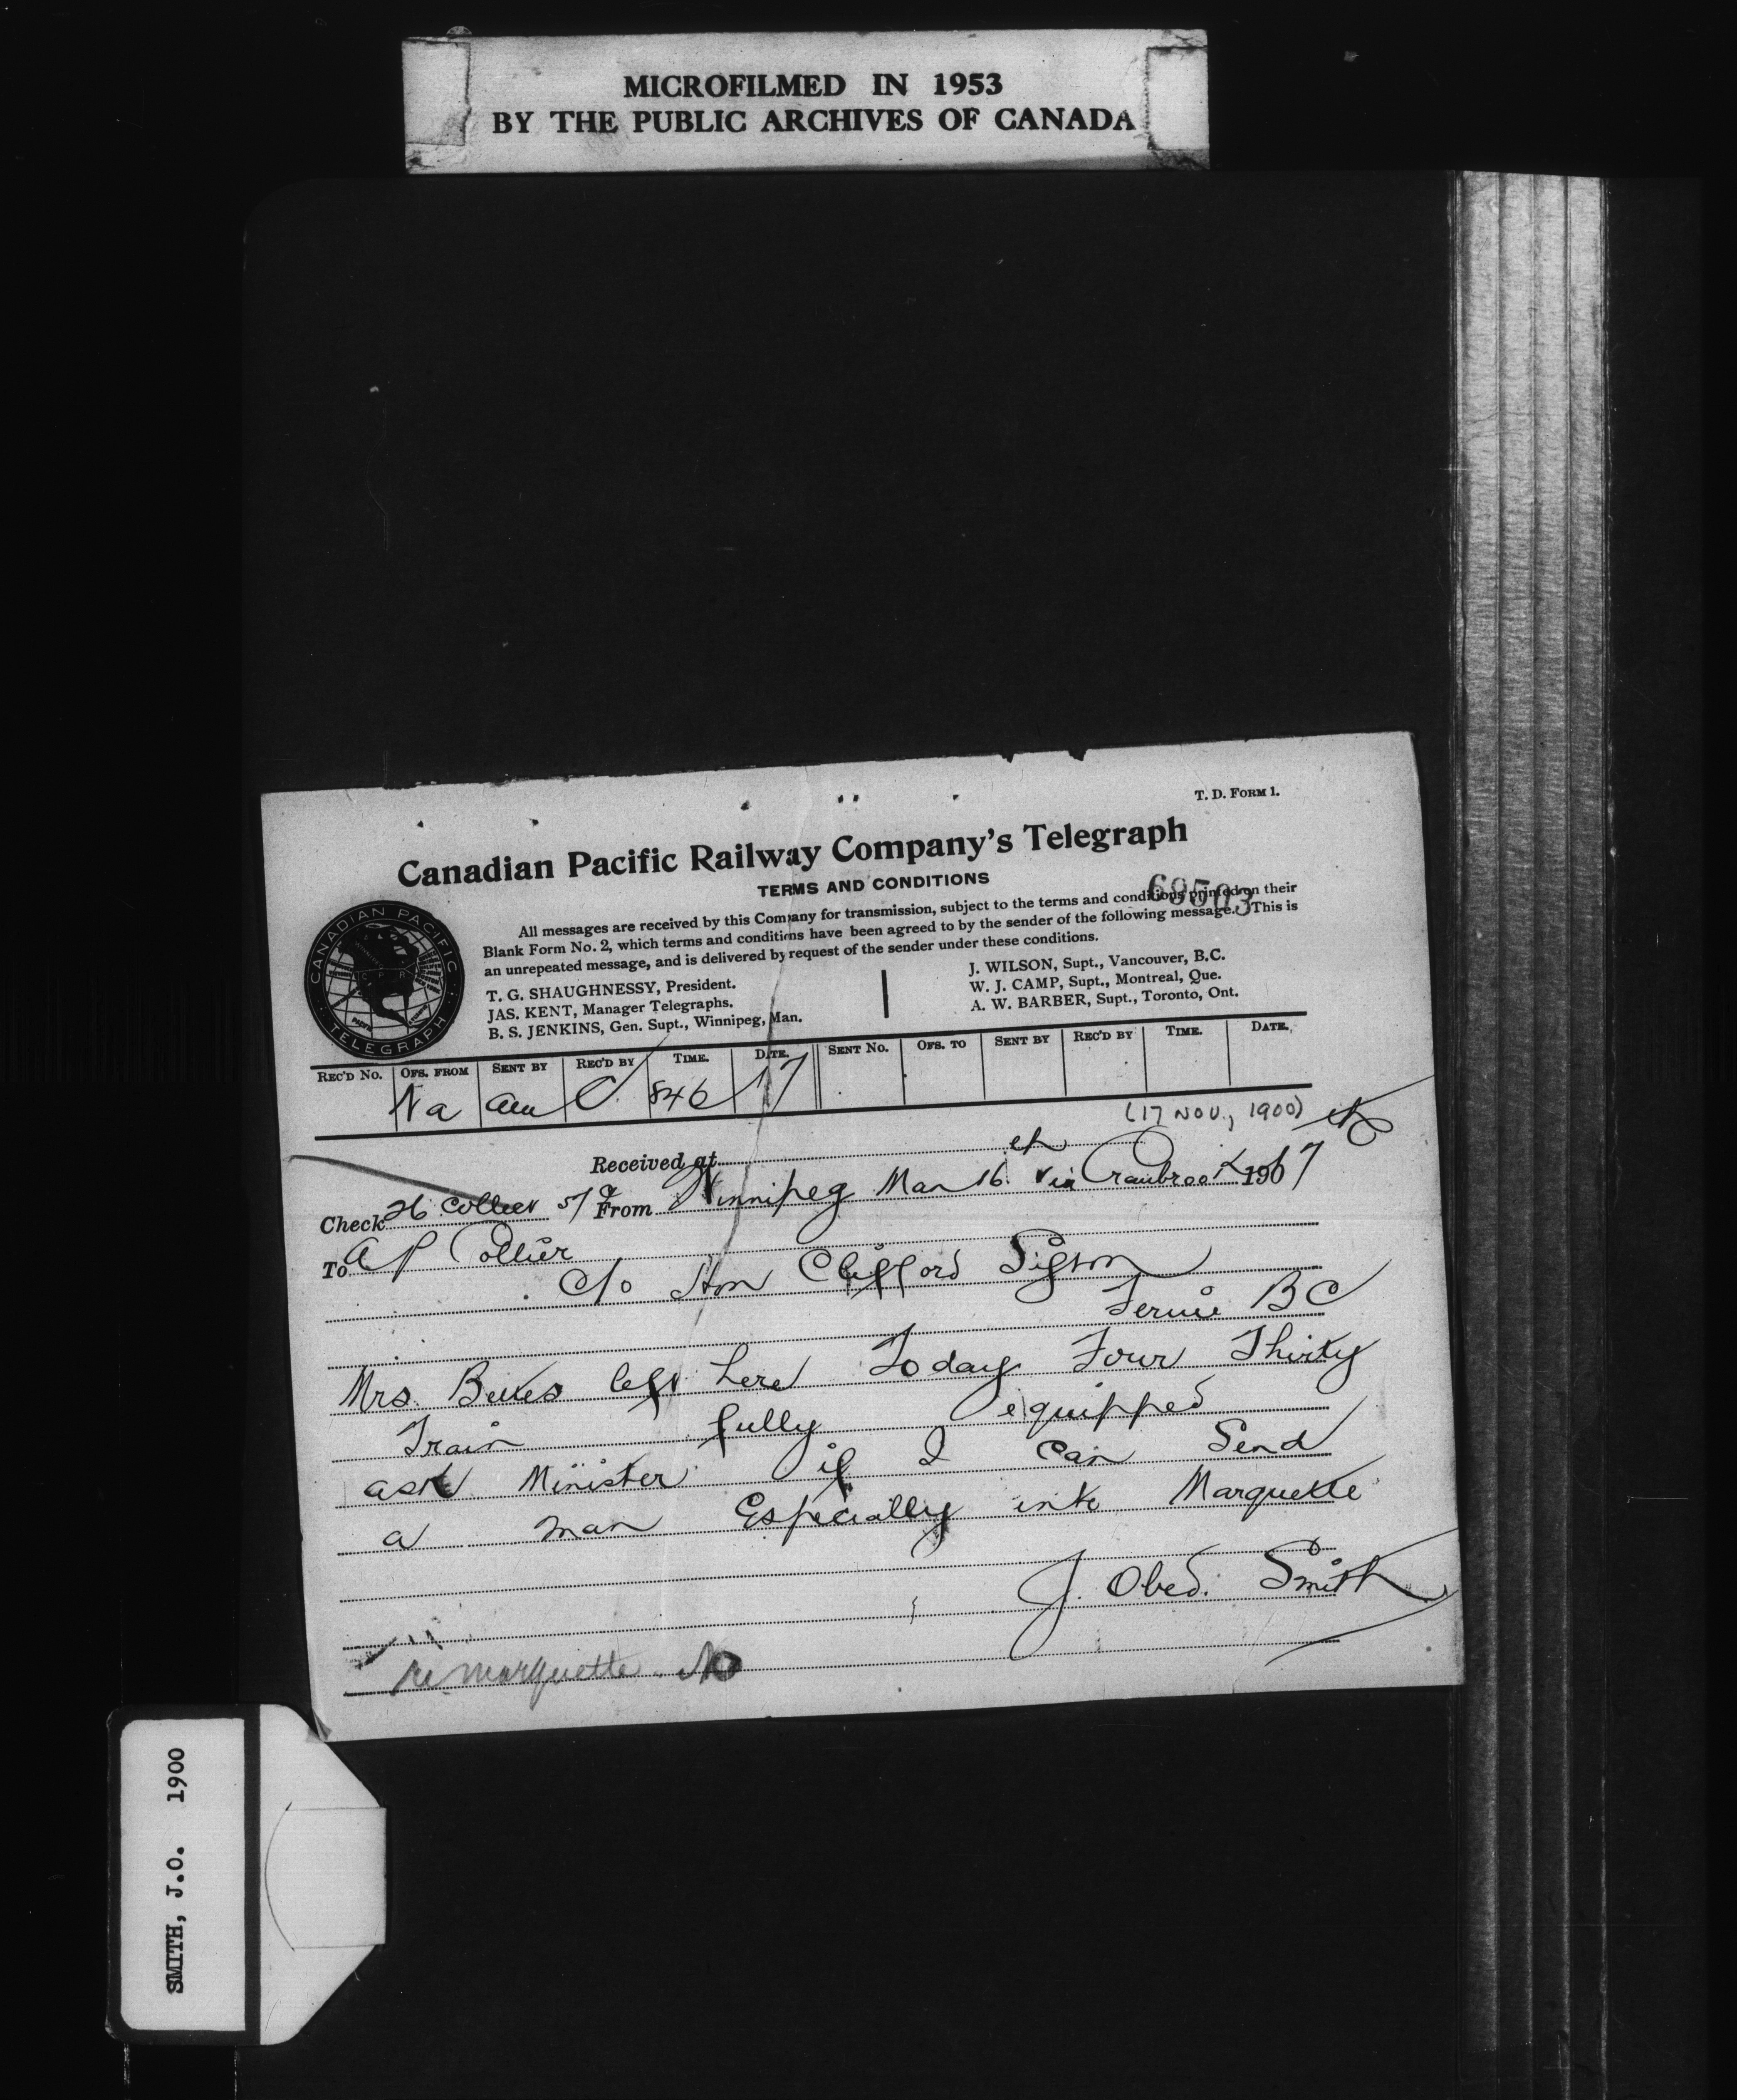 MICROFILMED IN 1953
BY THE PUBLIC ARCHIVES OF CANADA
T. D. FORM 1.
Canadian Pacific Railway Company's Telegraph
TERMS AND CONDITIONS
69503
All messages are received by this Company for transmission, subject to the terms and conditions printed on their
Blank Form No. 2, which terms and conditions have been agreed to by the sender of the following message. This is
an unrepeated message, and is delivered by request of the sender under these conditions.
T. G. SHAUGHNESSY, President.
JAS. KENT, Manager Telegraphs.
B. S. JENKINS, Gen. Supt., Winnipeg, Man.
J. WILSON, Supt., Vancouver, B.C.
W. J. CAMP, Supt., Montreal, Que.
A. W. BARBER, Supt., Toronto, Ont.
CANADIAN PACIFIC
C P R
TELEGRAPH
REC'D No. OFS. FROM SENT BY REC'D BY TIME. DATE. SENT No. OFS. TO SENT BY REC'D BY TIME. DATE.
Na 846 17
(17 NOV., 1900)
Received at
Check 26 Collect From Winnipeg Man 16 via Cranbrook 17 190
To A P Collier
c/o Hon Clifford Sifton
Fernie BC
Mrs. left here Today Four Thirty
Train fully equipped
ask Minister if I can Send
a man Especially into Marquette
J. Obed. Smith
re Marquette. No
SMITH, J.O. 1900